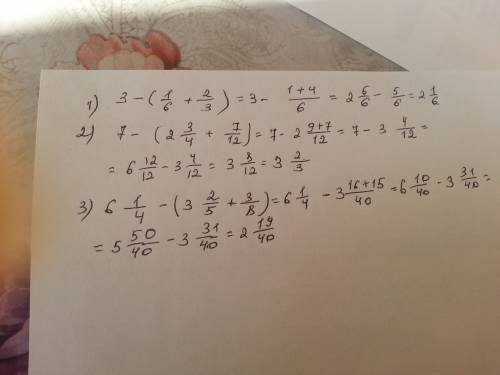 1) 3 - (1/6 + 2/3) = 3 - (1+4)/6 = 2 6/6 - 5/6 = 2 1/6
2) 7 - (2 3/4 + 7/12) = 7 - 2 (9+7)/12 = 7 - 3 4/12 =
= 6 12/12 - 3 4/12 = 3 8/12 = 3 2/3
3) 6 1/4 - (3 2/5 + 3/8) = 6 1/4 - 3 (16+15)/40 = 6 10/40 - 3 31/40 =
= 5 50/40 - 3 31/40 = 2 19/40